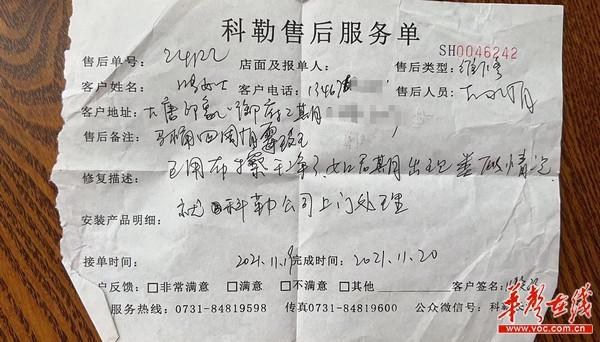 科勒售后服务单
SH0046242
售后单号： 店面及报单人： 售后类型：维修
客户姓名 女士 客户电话：1346 售后人员：
客户地址：大唐印象 御府二期
售后备注：马桶四周有霉斑
已用布擦干净了，如后期出现 类似情况
修复描述：
就由科勒公司上门处理
安装产品明细：
接单时间： 2021.11.19 完成时间：2021.11.20
户反馈：□非常满意 □满意 □不满意 □其他 客户签名：
服务热线：0731-84819598 传真0731-84819600 公众微信号：科
华声在线
www.voc.com.cn